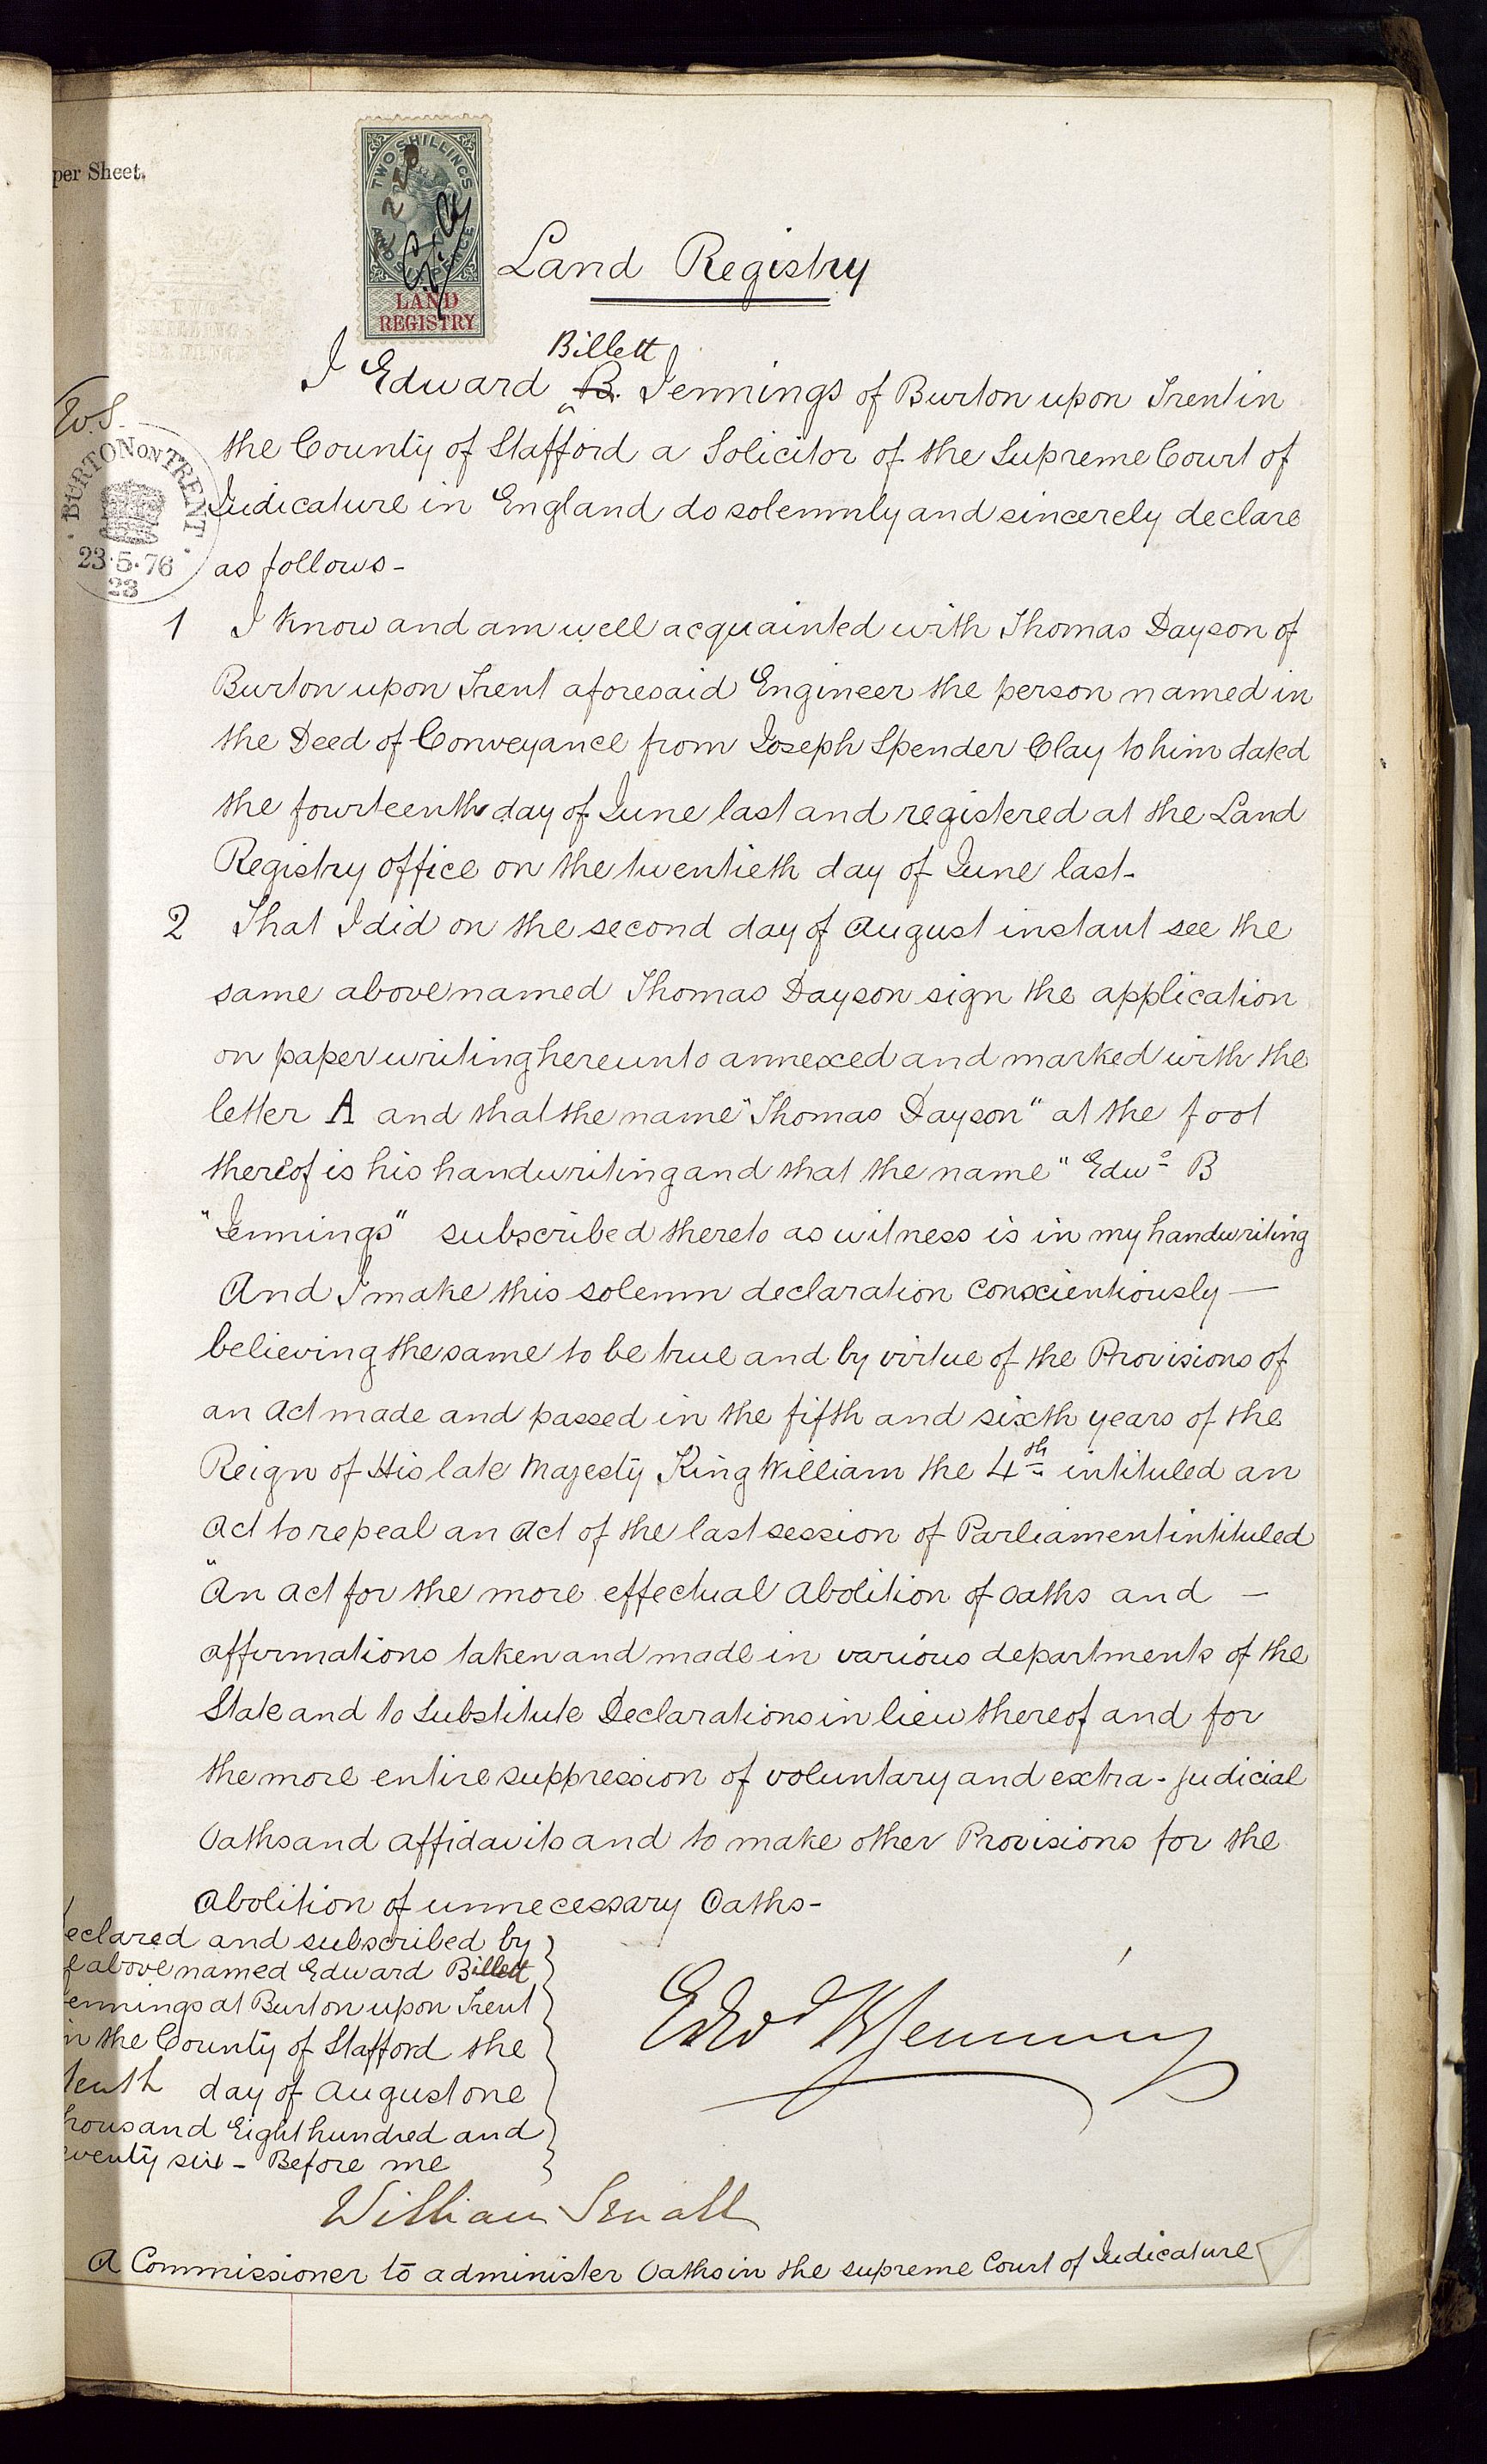 per Sheet.
TWO SHILLINGS
AND SIX PENCE
LAND
REGISTRY
Land Registry
Billett
I Edward B. Jennings of Burton upon Trent in
the County of Stafford a Solicitor of the Supreme Court of
Judicature in England do solemnly and sincerely declare
as follows-
BURTON ON TRENT
23·5·76
23
1 I know and am well acquainted with Thomas Dayson of
Burton upon Trent aforesaid Engineer the person named in
the Deed of Conveyance from Joseph Spender Clay to him dated
the fourteenth day of June last and registered at the Land
Registry office on the twentieth day of June last-
2 That I did on the second day of August instant see the
same above named Thomas Dayson sign the application
on paper writing hereunto annexed and marked with the
letter A and that the name "Thomas Dayson" at the foot
thereof is his handwriting and that the name "Edwd B
"Jennings" subscribed thereto as witness is in my handwriting
And I make this solemn declaration conscientiously —
believing the same to be true and by virtue of the Provisions of
an Act made and passed in the fifth and sixth years of the
Reign of His late Majesty King William the 4th intituled an
Act to repeal an Act of the last session of Parliament intituled
"An act for the more effectual abolition of oaths and —
affirmations taken and made in various departments of the
State and to Substitute Declarations in lieu thereof and for
the more entire suppression of voluntary and extra-judicial
Oaths and affidavits and to make other Provisions for the
abolition of unnecessary Oaths-
eclared and subscribed by
e above named Edward Billett
ennings at Burton upon Trent
in the County of Stafford the
tenth day of August one
housand Eight hundred and
eventy six - Before me
Edwd B Jennings
William Small
A Commissioner to administer Oaths in the supreme Court of Judicature